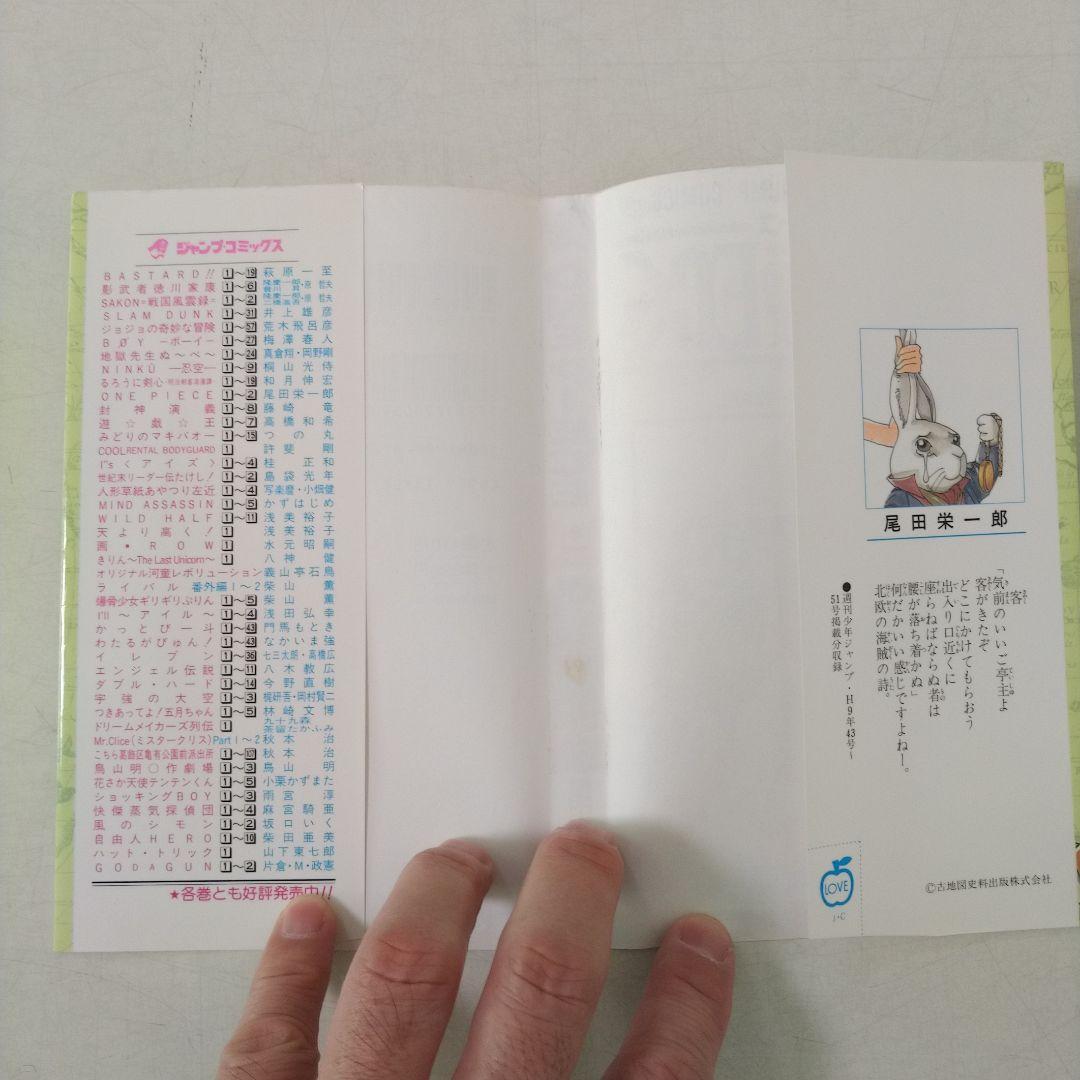 ジャンプ・コミックス
BASTARD!! 1～19 萩原一至
影武者徳川家康 1～6 隆慶一郎・原哲夫
SAKON=戦国風雲録= 1～2 隆慶一郎・原哲夫
SLAM DUNK 1～31 井上雄彦
ジョジョの奇妙な冒険 1～57 荒木飛呂彦
BØY ーボーイー 1～27 梅澤春人
地獄先生ぬ～べ～ 1～24 真倉翔・岡野剛
NINKŪ ―忍空― 1～9 桐山光侍
るろうに剣心 1～19 和月伸宏
ONE PIECE 1～2 尾田栄一郎
封神演義 1～8 藤崎竜
遊☆戯☆王 1～7 高橋和希
みどりのマキバオー 1～15 つの丸
COOLRENTAL BODYGUARD 1 許斐剛
I"s〈アイズ〉 1～4 桂正和
世紀末リーダー伝たけし! 1～2 島袋光年
人形草紙あやつり左近 1～4 写楽麿・小畑健
MIND ASSASSIN 1～5 かずはじめ
WILD HALF 1～11 浅美裕子
天より高く! 1 浅美裕子
画・ROW 1 水元昭嗣
きりん～The Last Unicorn～ 1 八神健
オリジナル河童レボリューション 義山亭石鳥
ライバル 番外編1～2 柴山薫
爆骨少女ギリギリぷりん 1～5 柴山薫
I'll ～アイル～ 1～4 浅田弘幸
かっとび一斗 1～43 門馬もとき
わたるがぴゅん! 1～43 なかいま強
イレブン 1～36 七三太郎・高橋広
エンジェル伝説 1～11 八木教広
ダブル・ハード 1～14 今野直樹
宇強の大空 1～3 梶研吾・岡村賢二
つきあってよ!五月ちゃん 1～5 林崎文博
ドリームメイカーズ列伝 1 九十九森 茶留たかふみ
Mr.Clice(ミスタークリス)Part1～2 秋本治
こちら葛飾区亀有公園前派出所 1～107 秋本治
鳥山明○作劇場 1～3 鳥山明
花さか天使テンテンくん 1～5 小栗かずまた
ショッキングBOY 1～3 雨宮淳
快傑蒸気探偵団 1～4 麻宮騎亜
風のシモン 1～2 坂口いく
自由人HERO 1～10 柴田亜美
ハット・トリック 1 山下東七郎
GODAGUN 1～2 片倉・M・政憲
★各巻とも好評発売中!!
尾田栄一郎
「気前のいいご亭主よ
客がきたぞ
どこにかけてもらおう
出入り口近くに
座らねばならぬ者は
腰が落ち着かぬ」
何だかいい感じですよねー。
北欧の海賊の詩。
●週刊少年ジャンプ・H9年43号～
51号掲載分収録
LOVE
©古地図史料出版株式会社